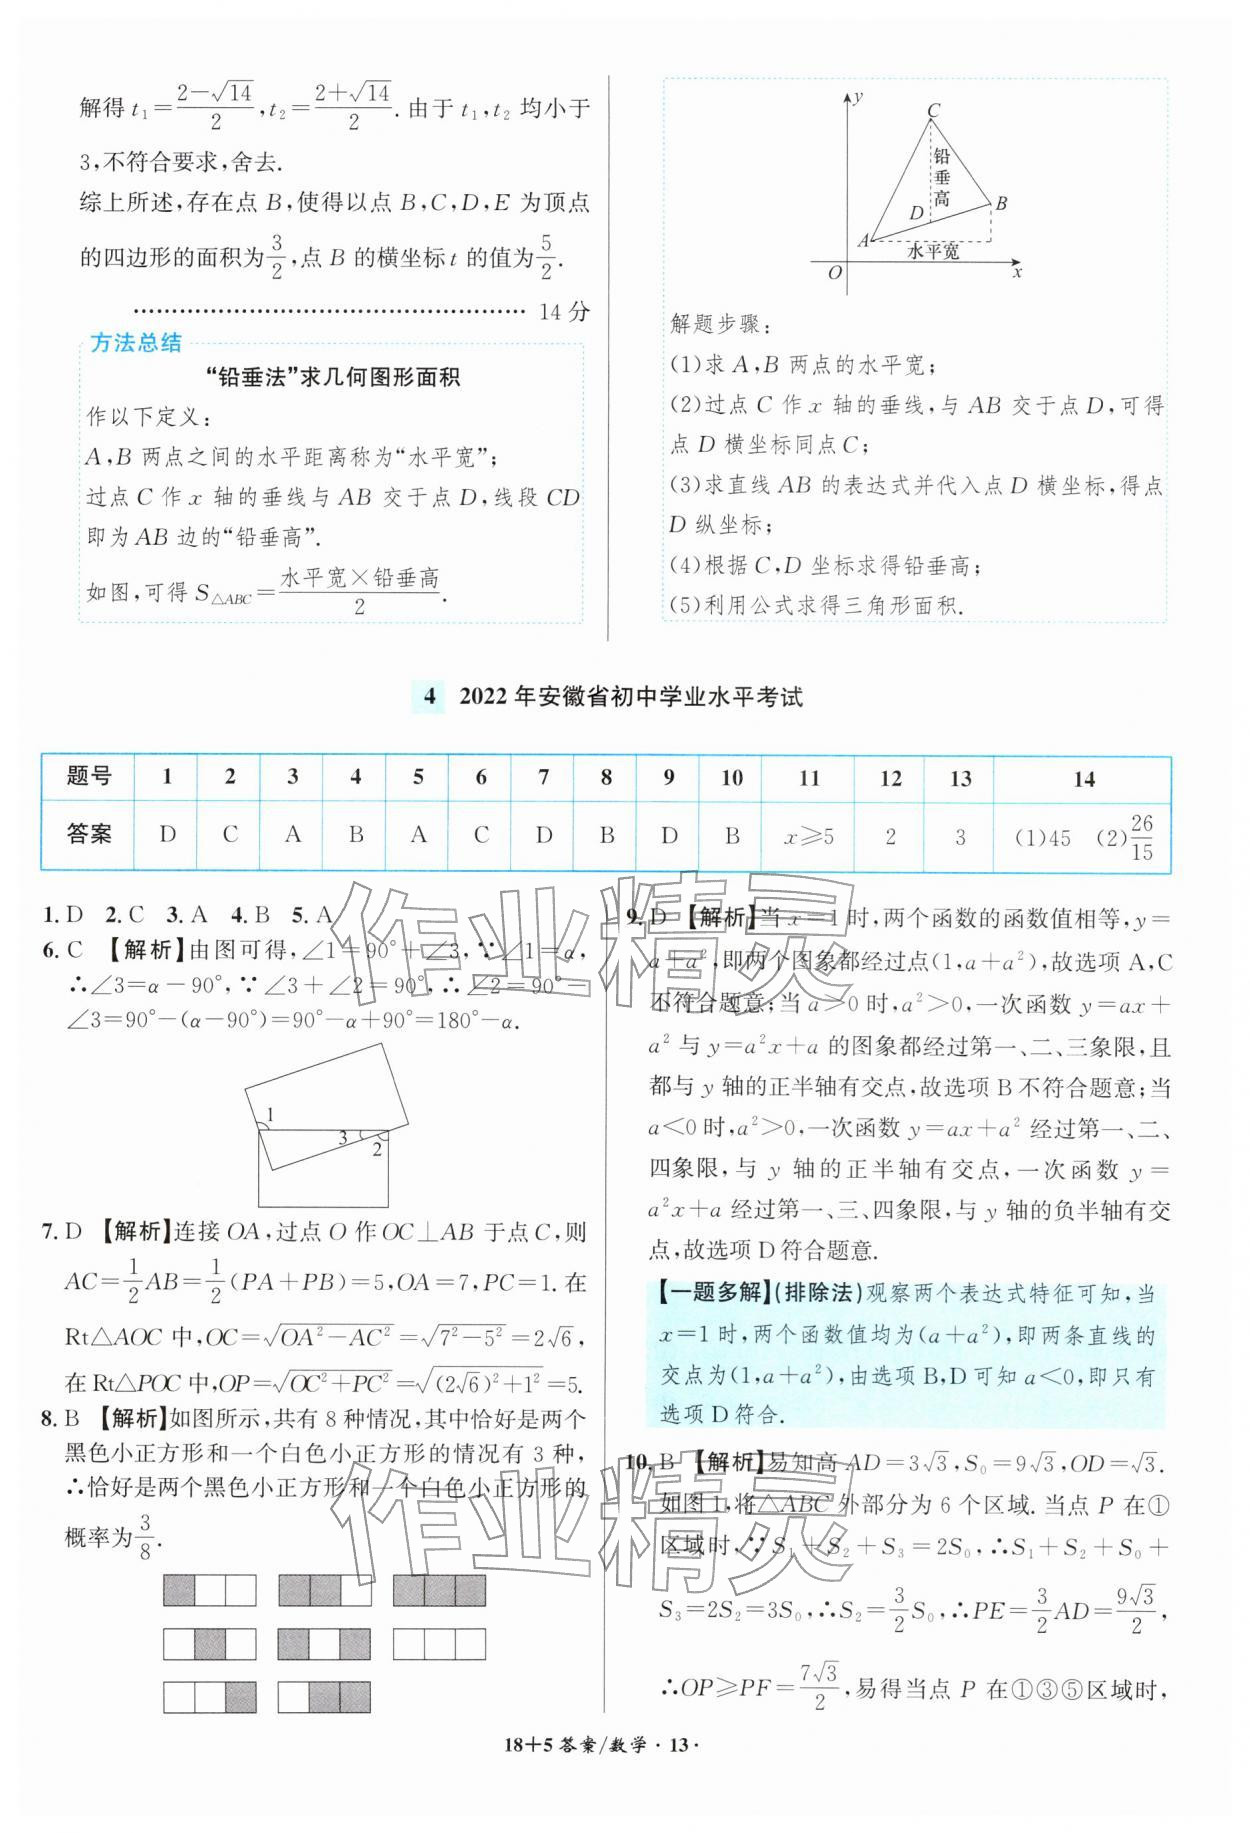 解得 t₁=(2−√14)/2, t₂=(2+√14)/2. 由于 t₁, t₂ 均小于
3,不符合要求,舍去.
综上所述,存在点 B,使得以点 B,C,D,E 为顶点
的四边形的面积为 3/2,点 B 的横坐标 t 的值为 5/2.
…………………………………………… 14 分
方法总结
“铅垂法”求几何图形面积
作以下定义:
A,B 两点之间的水平距离称为“水平宽”;
过点 C 作 x 轴的垂线与 AB 交于点 D,线段 CD
即为 AB 边的“铅垂高”.
如图,可得 S△ABC=水平宽×铅垂高/2.
y
C
铅垂高
D
B
A
水平宽
O
x
解题步骤:
(1)求 A,B 两点的水平宽;
(2)过点 C 作 x 轴的垂线,与 AB 交于点 D,可得
点 D 横坐标同点 C;
(3)求直线 AB 的表达式并代入点 D 横坐标,得点
D 纵坐标;
(4)根据 C,D 坐标求得铅垂高;
(5)利用公式求得三角形面积.
4 2022 年安徽省初中学业水平考试
题号 1 2 3 4 5 6 7 8 9 10 11 12 13 14
答案 D C A B A C D B D B x≥5 2 3 (1)45 (2)26/15
1. D 2. C 3. A 4. B 5. A
6. C 【解析】由图可得,∠1=90°+∠3,∵∠1=α,
∴∠3=α−90°,∵∠3+∠2=90°,∴∠2=90°−
∠3=90°−(α−90°)=90°−α+90°=180°−α.
1
3
2
7. D 【解析】连接 OA,过点 O 作 OC⊥AB 于点 C,则
AC=1/2AB=1/2(PA+PB)=5,OA=7,PC=1. 在
Rt△AOC 中,OC=√(OA²−AC²)=√(7²−5²)=2√6,
在 Rt△POC 中,OP=√(OC²+PC²)=√((2√6)²+1²)=5.
8. B 【解析】如图所示,共有 8 种情况,其中恰好是两个
黑色小正方形和一个白色小正方形的情况有 3 种,
∴恰好是两个黑色小正方形和一个白色小正方形的
概率为 3/8.
9. D 【解析】当 x=1 时,两个函数的函数值相等,y=
a+a²,即两个图象都经过点(1,a+a²),故选项 A,C
不符合题意;当 a>0 时,a²>0,一次函数 y=ax+
a² 与 y=a²x+a 的图象都经过第一、二、三象限,且
都与 y 轴的正半轴有交点,故选项 B 不符合题意;当
a<0 时,a²>0,一次函数 y=ax+a² 经过第一、二、
四象限,与 y 轴的正半轴有交点,一次函数 y=
a²x+a 经过第一、三、四象限,与 y 轴的负半轴有交
点,故选项 D 符合题意.
【一题多解】(排除法)观察两个表达式特征可知,当
x=1 时,两个函数值均为(a+a²),即两条直线的
交点为(1,a+a²),由选项 B,D 可知 a<0,即只有
选项 D 符合.
10. B 【解析】易知高 AD=3√3,S₀=9√3,OD=√3.
如图 1,将△ABC 外部分为 6 个区域. 当点 P 在①
区域时,∵S₁+S₂+S₃=2S₀,∴S₁+S₂+S₀+
S₃=2S₂=3S₀,∴S₂=3/2S₀,∴PE=3/2AD=9√3/2,
∴OP≥PF=7√3/2,易得当点 P 在①③⑤区域时,
18+5 答案/数学·13·
作业精灵
作业精灵